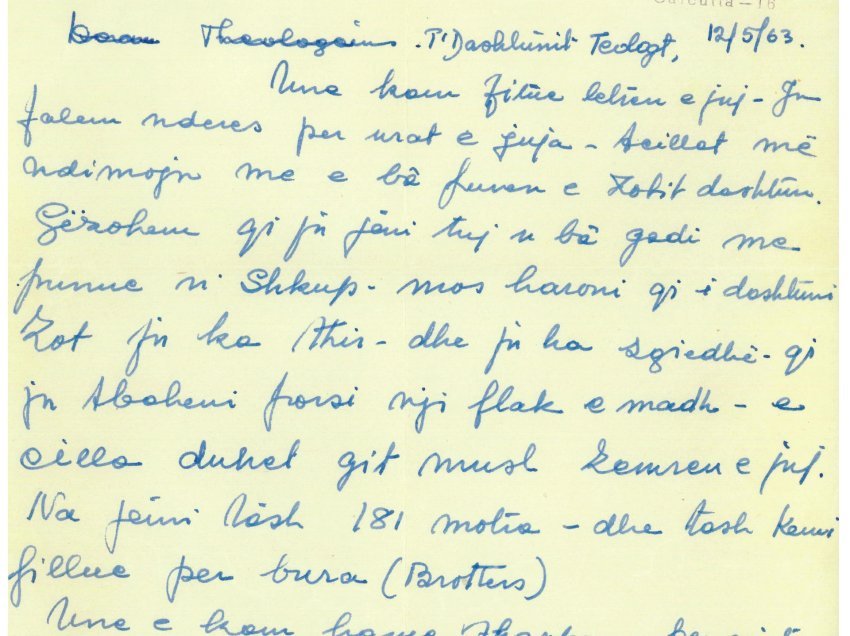 Calcutta - 16
T'Dashtunit Teologt, 12/5/63.
Une kam fitue letren e juj - Ju
falem nderes per urat e juja - Acillat më
ndimojn me e bâ punen e Zotit dashtun.
Gëzohem qi ju jeni tuj u bâ gadi me
punue ni Shkup - mos haroni qi i dashtuni
Zot ju ka thir - dhe ju ka zgiedhë - qi
ju tbaheni porsi nji flak e madh - e
cilla duhet git mush zemren e juj.
Na jemi tash 181 motra - dhe tash kemi
fillue per bura (Brotters)
Une e kam